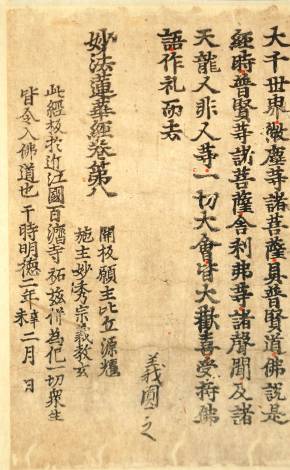 大千世界微塵等諸菩薩具普賢道佛說是
經時普賢等諸菩薩舍利弗等諸聲聞及諸
天龍人非人等一切大會皆大歡喜受持佛
語作礼而去
妙法蓮華經卷第八
開板願主比丘源耀
施主妙秀宗義教玄
義圓之
此經板於近江國百濟寺為化一切衆生
皆令入佛道也于時明德二年辛未二月日